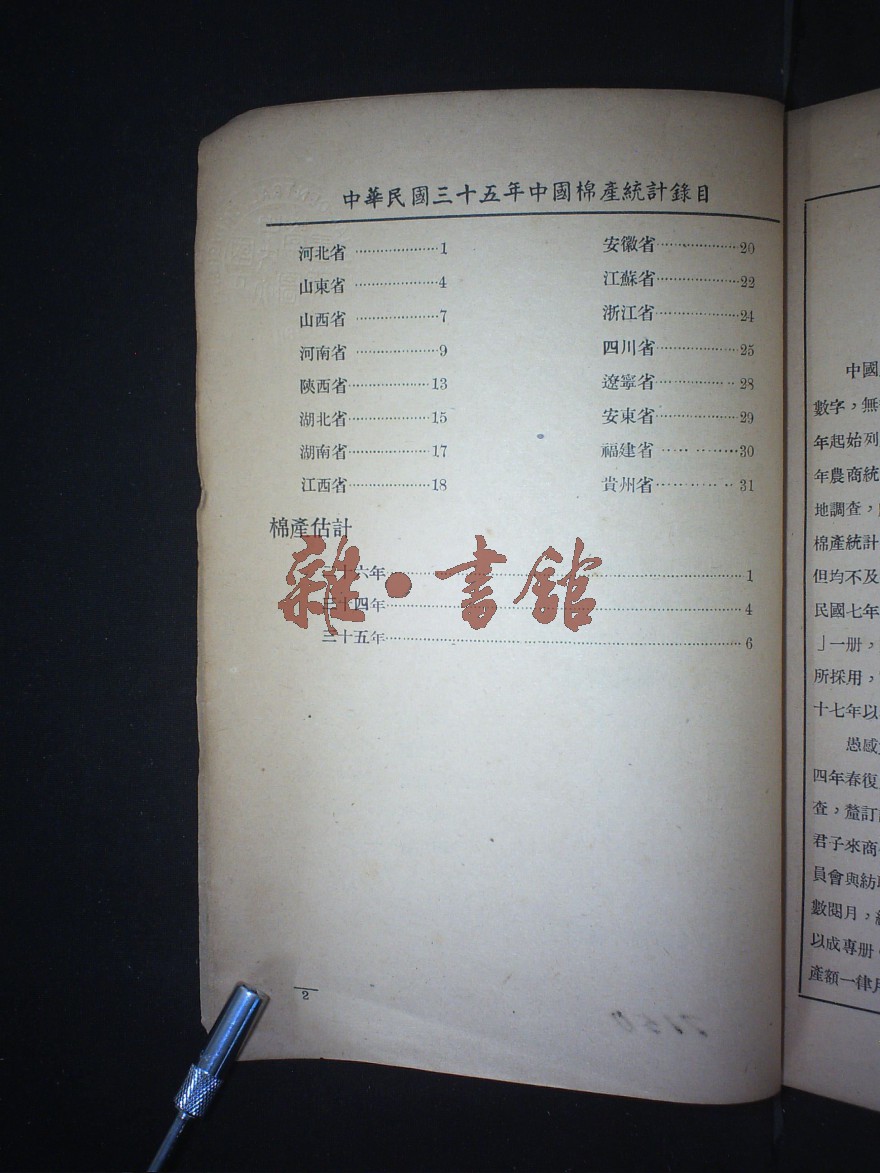 中華民國三十五年中國棉產統計錄目
河北省 ··················1
山東省 ··················4
山西省 ··················7
河南省 ··················9
陝西省··················13
湖北省··················15
湖南省··················17
江西省··················18
安徽省··················20
江蘇省··················22
浙江省··················24
四川省··················25
遼寧省··················28
安東省··················29
福建省··················30
貴州省··················31
棉產估計
十六年··················1
十四年··················4
三十五年··················6
雜·書館
2
中國
數字,無
年起始列
年農商統
地調查,
棉產統計
但均不及
民國七年
」一册,
所採用,
十七年以
愚感
四年春復
查,釐訂
君子來商
員會與紡
數閱月,
以成專册
產額一律